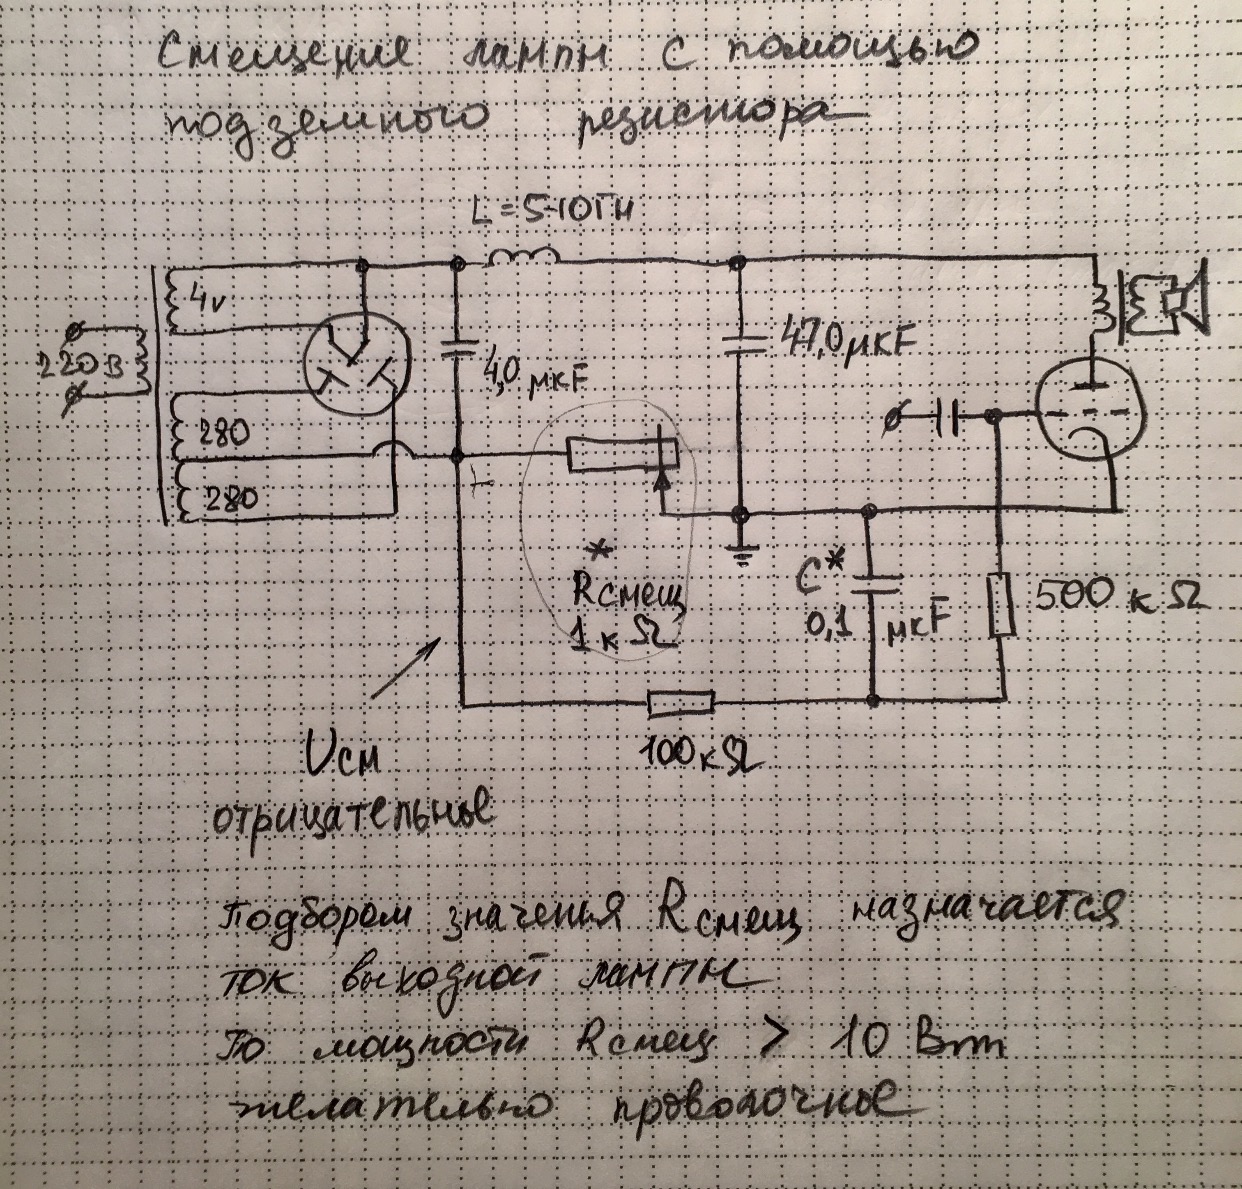 Смещение лампы с помощью
подземного резистора
L = 5-10Гн
4v
220В
47,0 мкF
4,0 мкF
280
280
*
Rсмещ
1 к Ω
C*
0,1 мкF
500 к Ω
100кΩ
Uсм
отрицательные
Подбором значенья Rсмещ назначается
ток выходной лампы
По мощности Rсмещ > 10 Вт
желательно проволочные